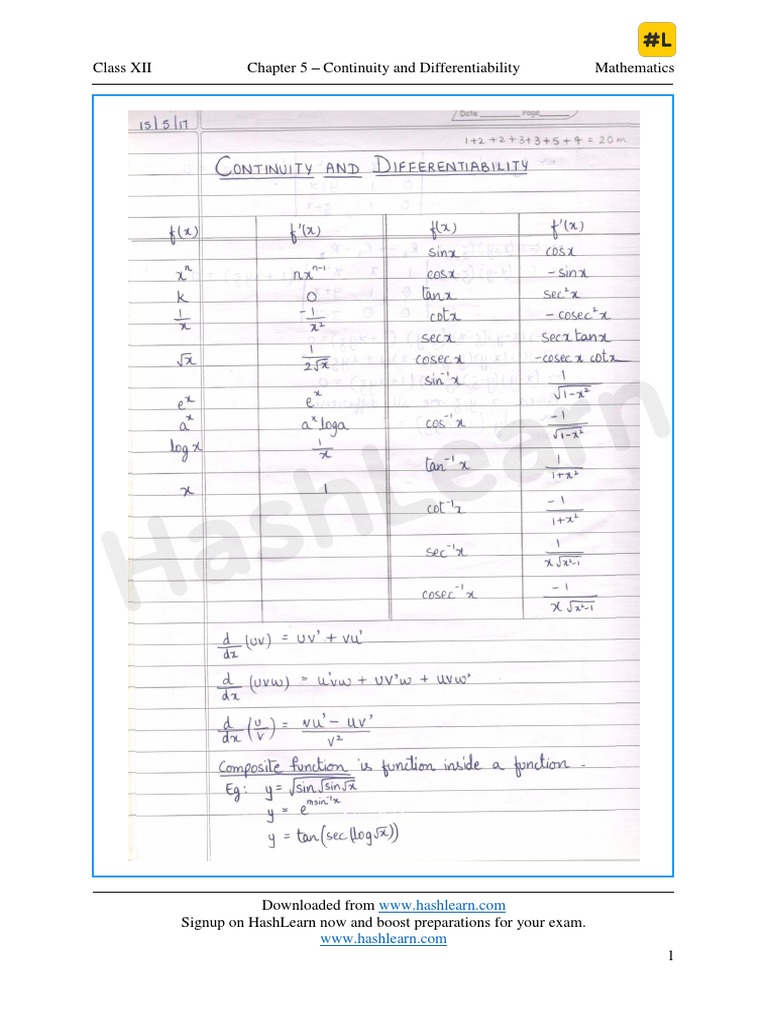 #L
Class XII Chapter 5 – Continuity and Differentiability Mathematics
Date Page
15/5/17
1+2+2+3+3+5+4 = 20m
CONTINUITY AND DIFFERENTIABILITY
f(x) f'(x) f(x) f'(x)
sinx cosx
xⁿ nxⁿ⁻¹ cosx -sinx
k 0 tanx sec²x
1/x -1/x² cotx -cosec²x
secx secx tanx
√x 1/2√x cosecx -cosecx cotx
sin⁻¹x 1/√1-x²
eˣ eˣ
aˣ aˣloga cos⁻¹x -1/√1-x²
logx 1/x
tan⁻¹x 1/1+x²
x 1
cot⁻¹x -1/1+x²
sec⁻¹x 1/x√x²-1
cosec⁻¹x -1/x√x²-1
d/dx (uv) = uv' + vu'
d/dx (uvw) = u'vw + uv'w + uvw'
d/dx (u/v) = vu' - uv'/v²
Composite function is function inside a function.
Eg: y = √sin√sin√x
y = e^msin⁻¹x
y = tan(sec(log√x))
HashLearn
Downloaded from www.hashlearn.com
Signup on HashLearn now and boost preparations for your exam.
www.hashlearn.com
1